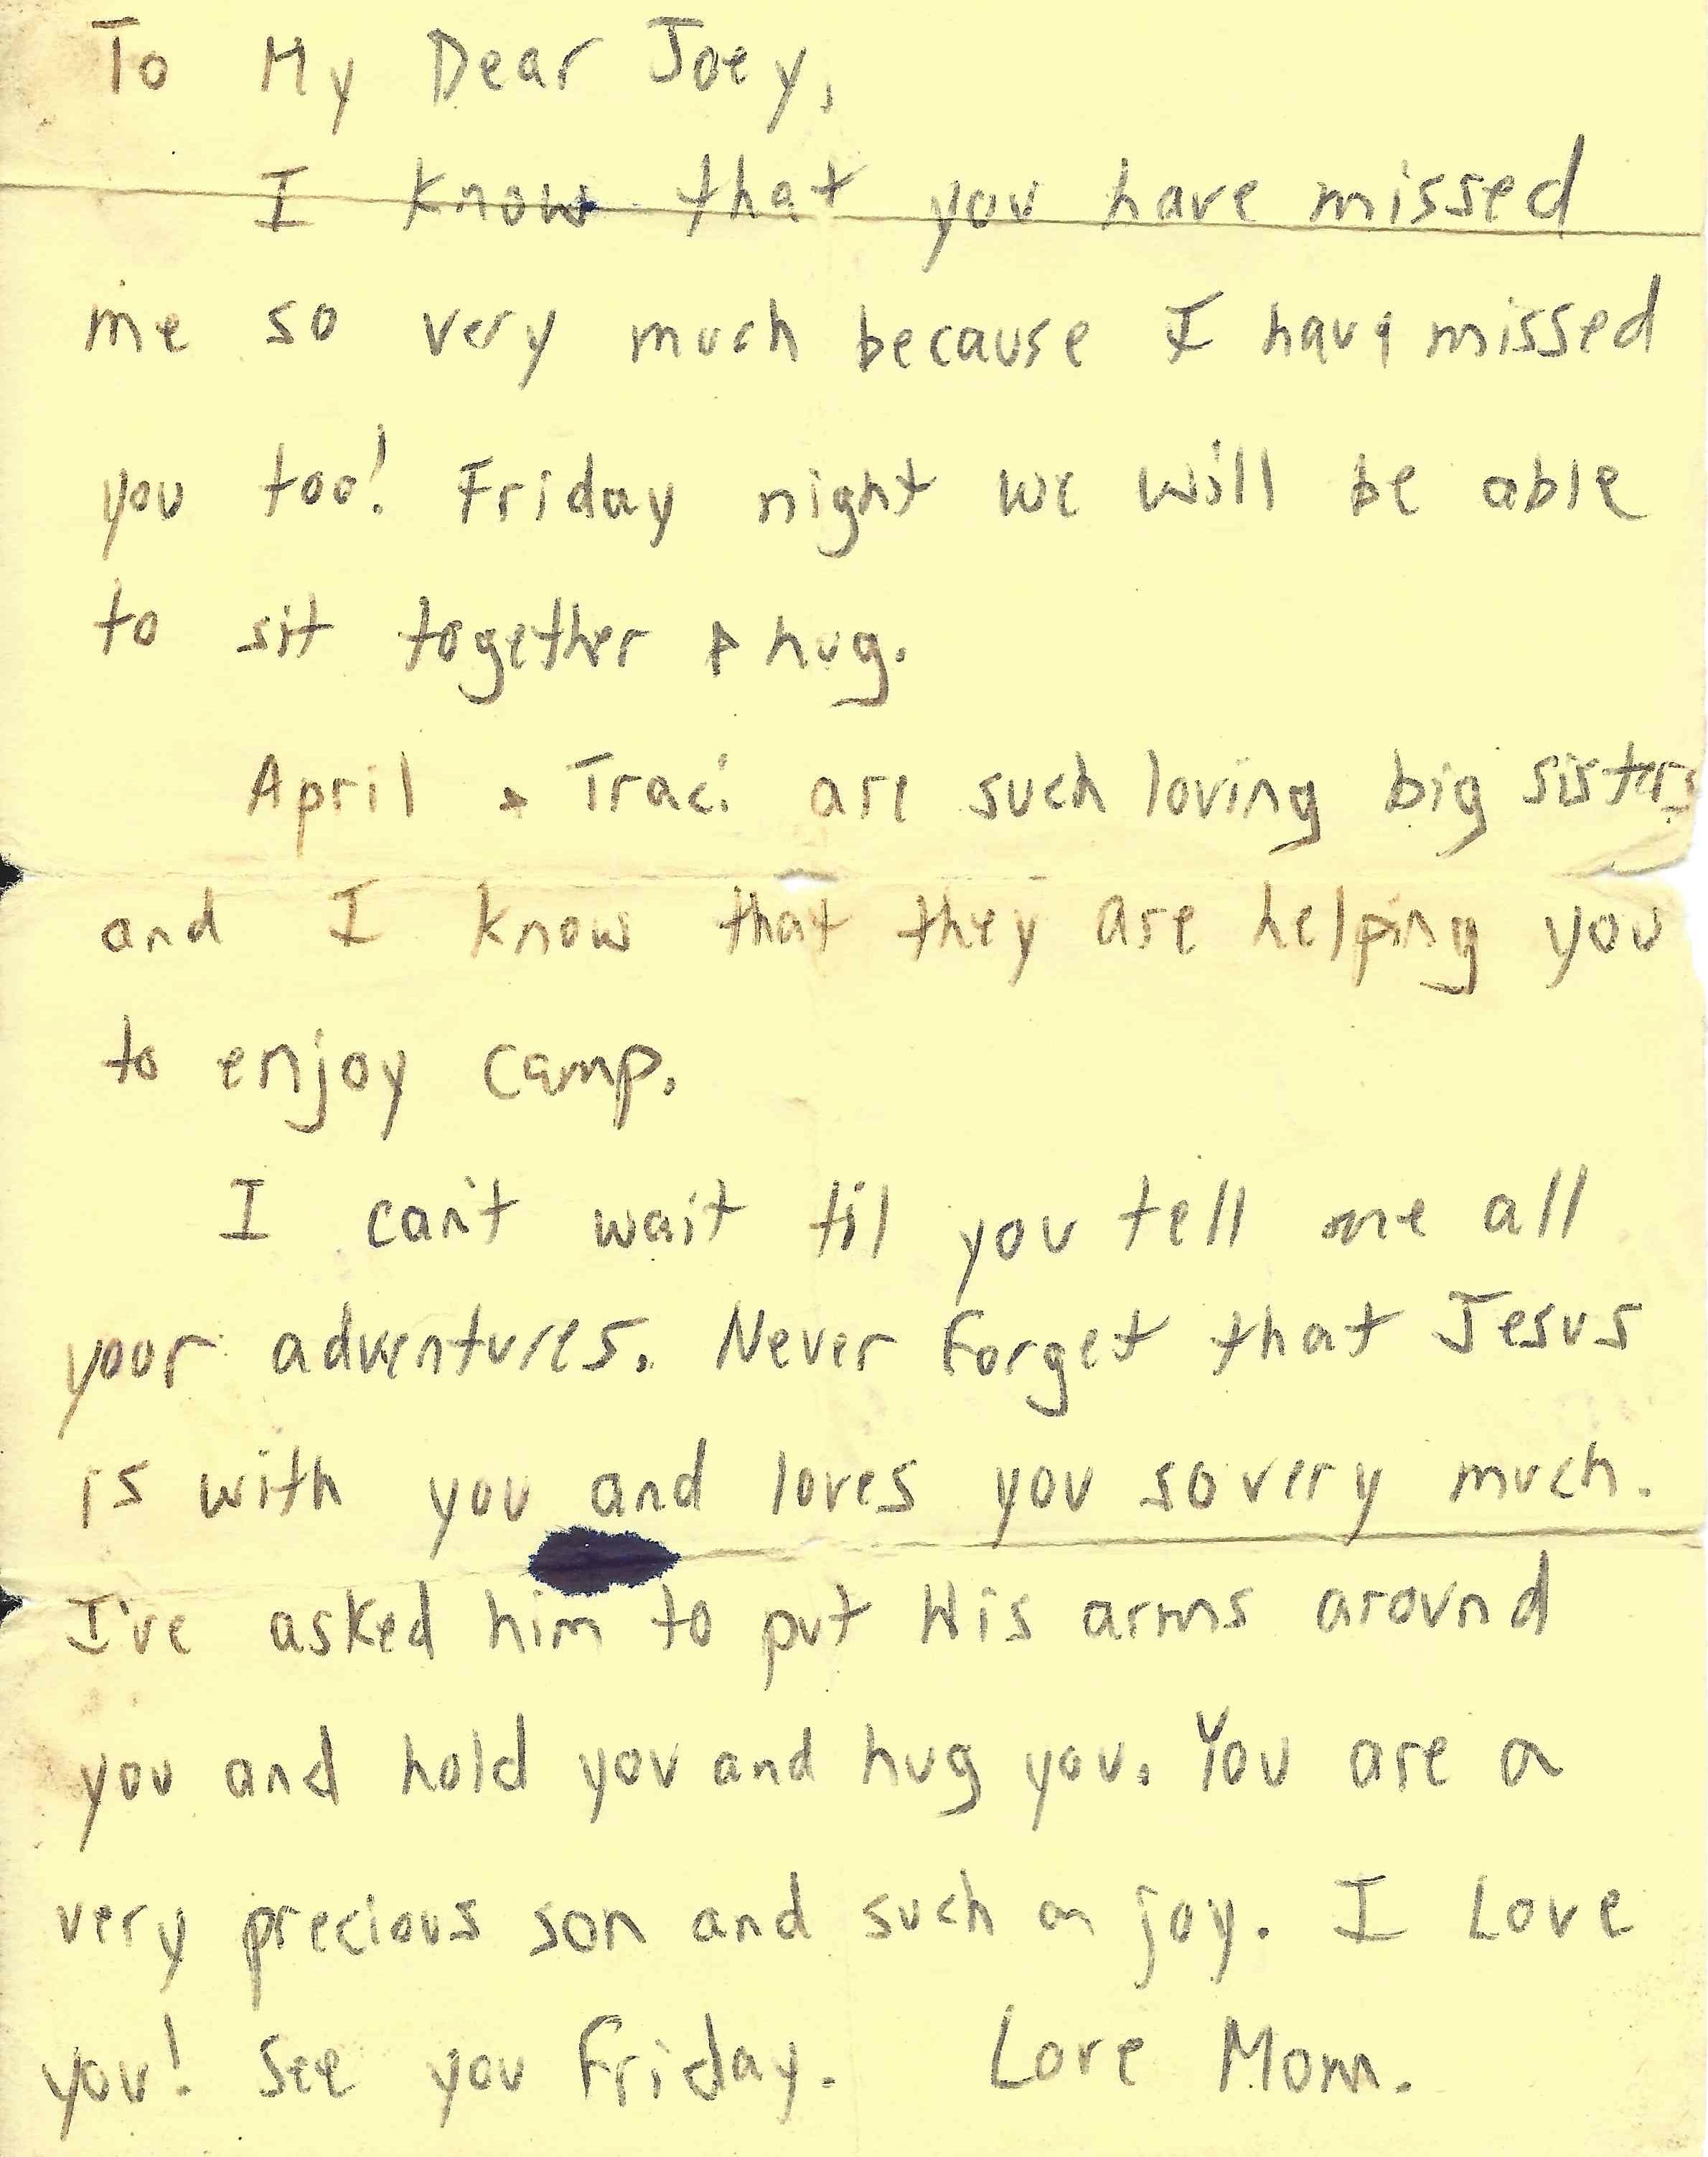 To My Dear Joey,
I know that you have missed
me so very much because I have missed
you too! Friday night we will be able
to sit together & hug.
April & Traci are such loving big sisters
and I know that they are helping you
to enjoy camp.
I can't wait til you tell me all
your adventures. Never forget that Jesus
is with you and loves you so very much.
I've asked him to put His arms around
you and hold you and hug you. You are a
very precious son and such a joy. I Love
you! See you Friday. Love Mom.